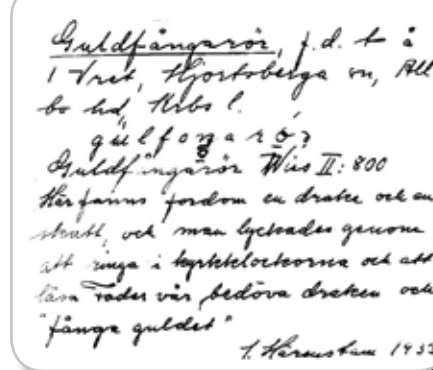 Guldfångarör, f.d. t å
1 Vret, Hjortsberga sn, All
bo hd, Krbs l.
Guldfångarör Wies II: 800
Här fanns fordom en drake och en
skatt, och man lyckades genom
att ringa i kyrkklockorna och att
läsa Fader vår bedöva draken och
"fånga guldet"